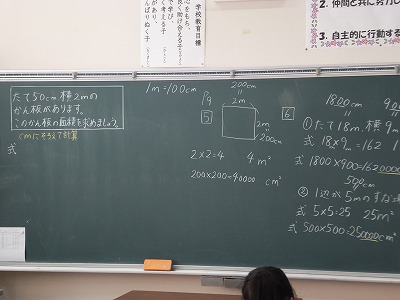 学校教育目標
2. 仲間と共に努力し
3. 自主的に行動する
たて50cm 横2mの
かん板があります。
このかん板の面積を求めましょう。
cmにそろえて計算
式
1m=100cm
P9
5
200cm
2m
2m
200cm
2×2=4 4m²
200×200=40000 cm²
6
1800cm
①たて18m. 横9m
式 18×9=162
式 1800×900=1620000
500cm
② 1辺が5mのすな場
式 5×5=25 25m²
式 500×500=250000cm²